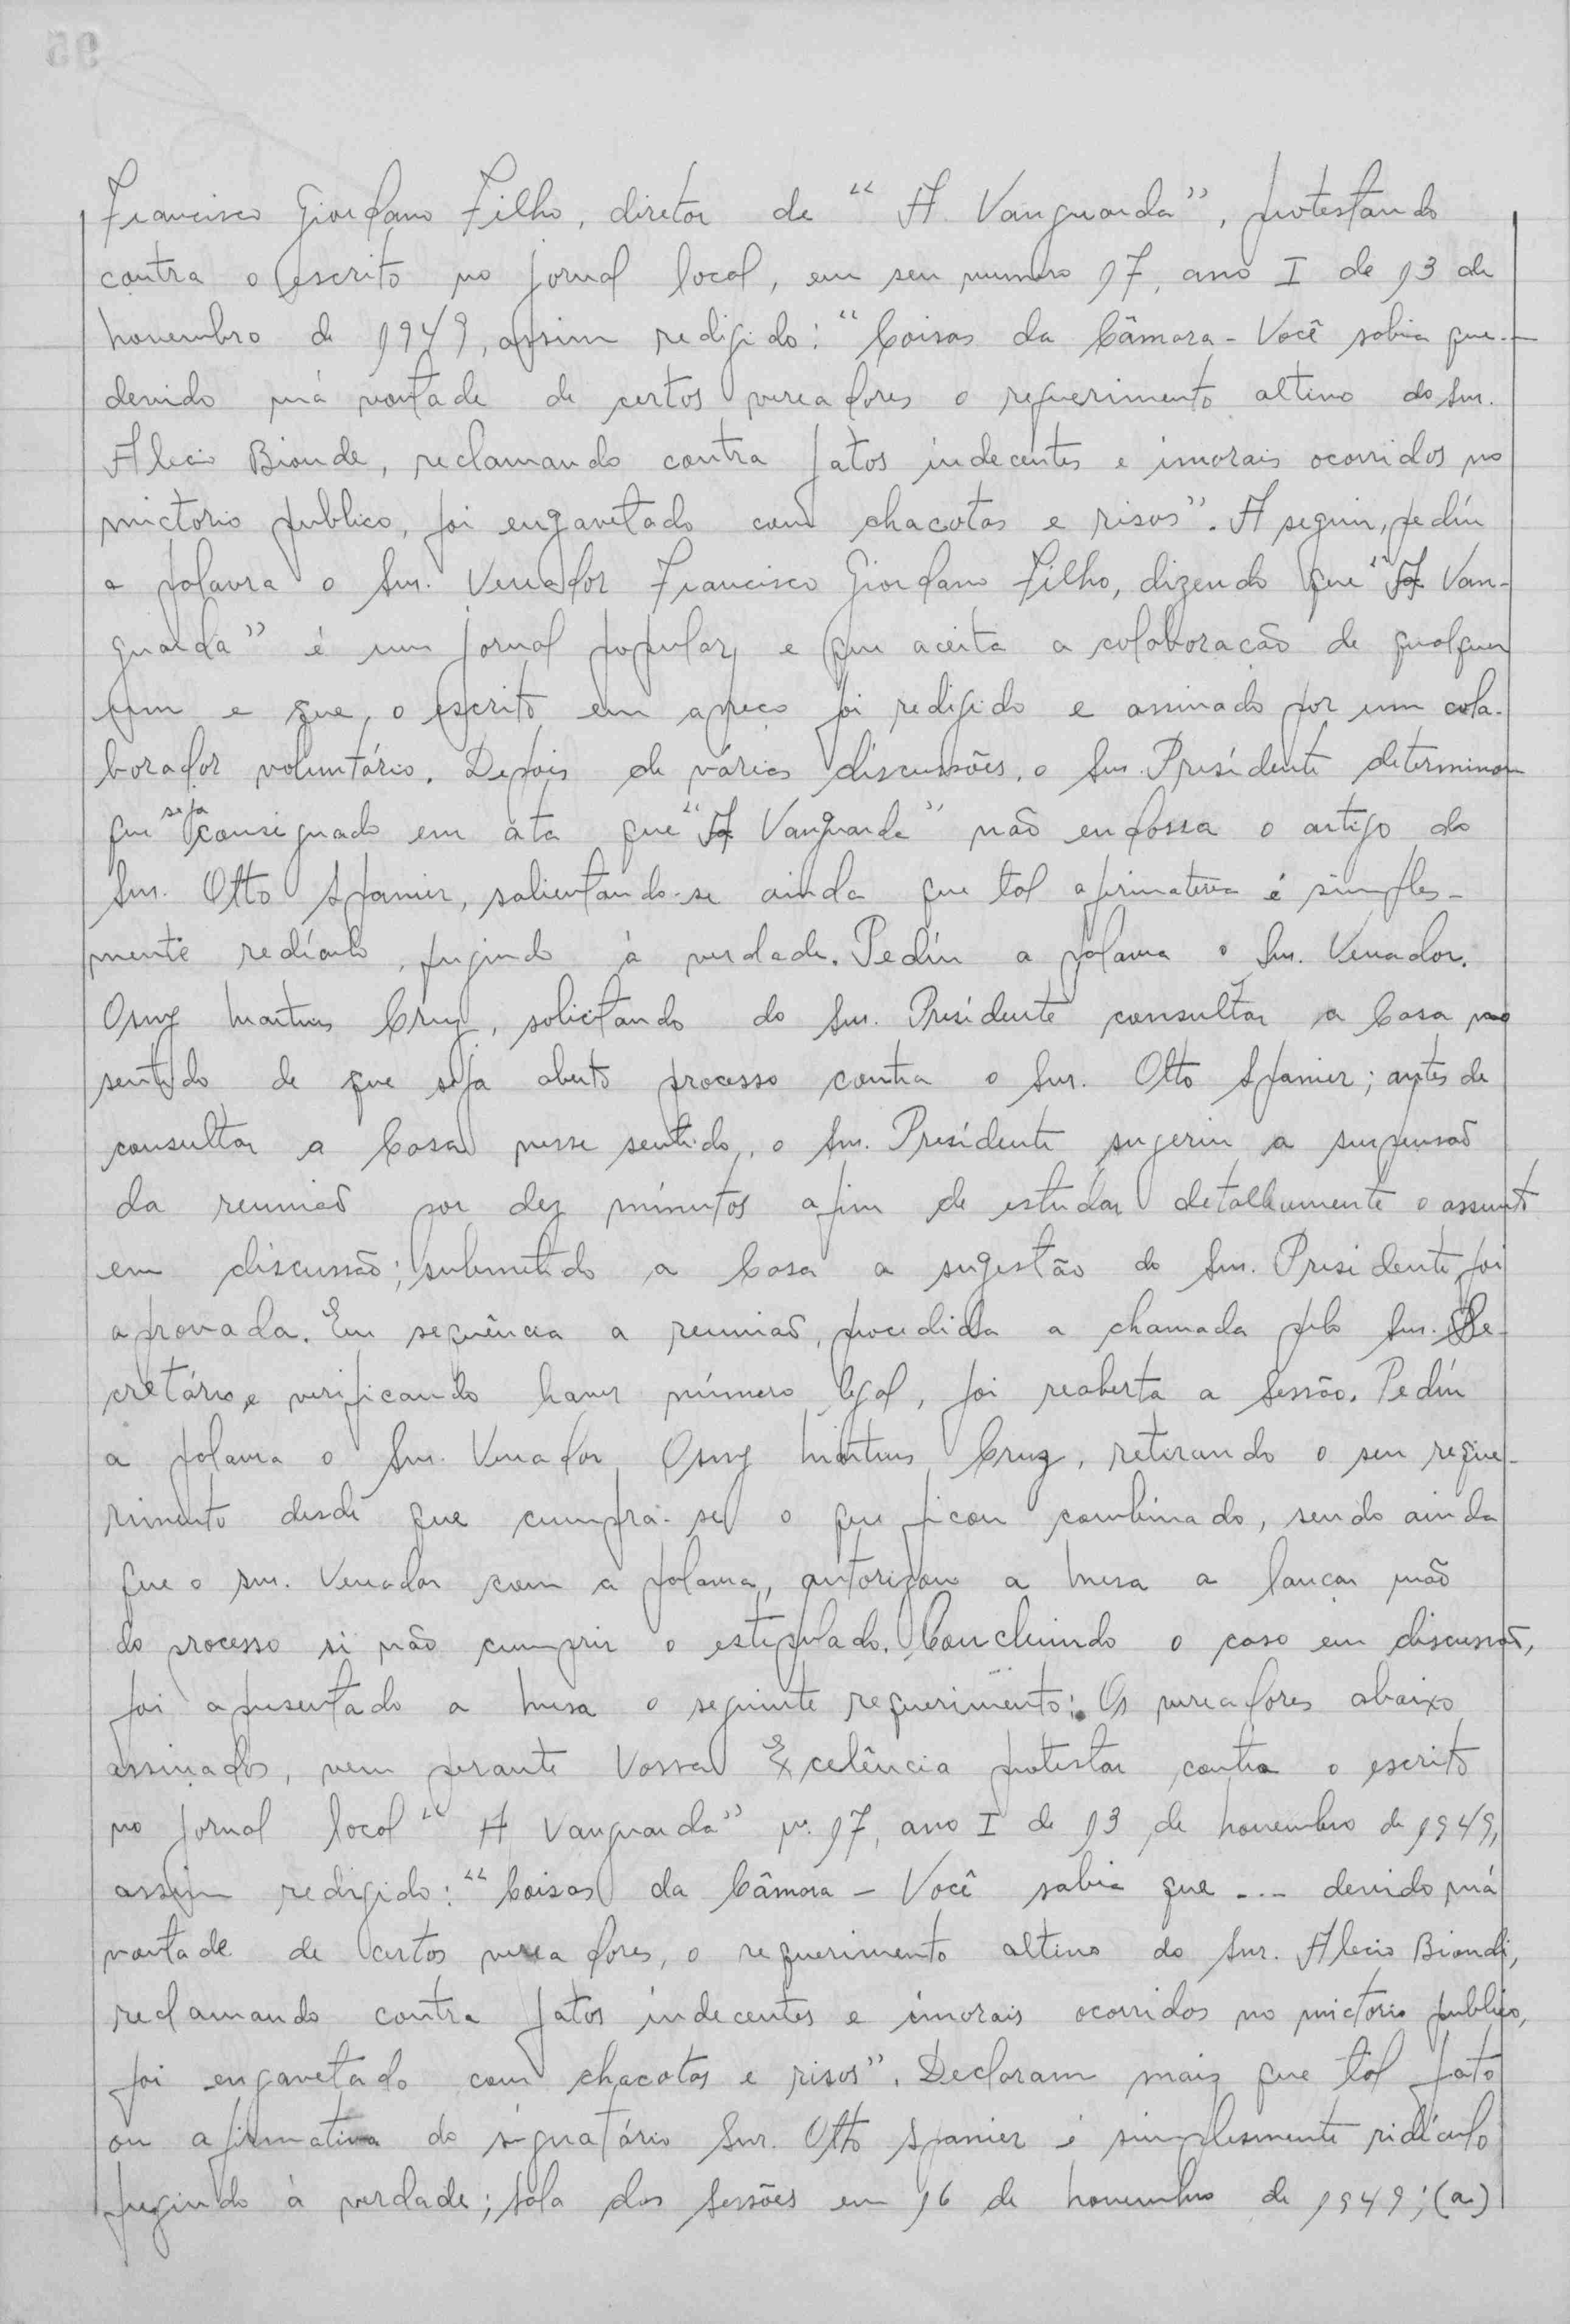 Francisco Giordano Filho, diretor de "A Vanguarda", protestando
contra o escrito no jornal local, em seu numero 17, ano I de 13 de
novembro de 1949, assim redigido: "Coisas da Câmara - Você sabia que...
devido má vontade de certos vereadores o requerimento altivo do Snr.
Alecio Bionde, reclamando contra fatos indecentes e imorais ocorridos no
mictorio publico, foi engavetado com chacotas e risos". A seguir, pedíu
a palavra o Snr. Vereador Francisco Giordano Filho, dizendo que "A Van-
guarda" é um jornal popular, e que aceita a colaboração de qualquer
um e que, o escrito em apreço foi redigido e assinado por um cola-
borador voluntário. Depois de várias discussões, o Snr. Presidente determinou
que seja consignado em áta que "A Vanguarda" não endossa o artigo do
Snr. Otto Spanier, salientando-se ainda que tal afirmativa é simples-
mente redículo, fugindo à verdade. Pedíu a palavra o Snr. Vereador.
Osny Martins Cruz, solicitando do Snr. Presidente consultar a Casa no
sentido de que seja aberto processo contra o Snr. Otto Spanier; antes de
consultar a Casa nesse sentido, o Snr. Presidente sugeriu a suspensão
da reunião por dez minutos afim de estudar detalhamente o assunto
em discussão; submetido a Casa a sugestão do Snr. Presidente, foi
aprovada. Em sequência a reunião, procedida a chamada pelo Snr. Se-
cretário, e verificando haver número legal, foi reaberta a Sessão. Pedíu
a palavra o Snr. Vereador Osny Martins Cruz, retirando o seu reque-
rimento desde que cumpra-se o que ficou combinado, sendo ainda
que o snr. Vereador com a palavra, autorizou a Mesa a lançar mão
do processo si não cumprir o estipulado. Concluindo o caso em discussão,
foi apresentado a Mesa o seguinte requerimento: Os vereadores abaixo
assinados, vem perante Vossa Excelência protestar contra o escrito
no jornal local "A Vanguarda" nº. 17, ano I de 13 de novembro de 1949,
assim redigido: "Coisas da Câmara - Você sabia que ... devido má
vontade de certos vereadores, o requerimento altivo do Snr. Alecio Biondi,
reclamando contra fatos indecentes e imorais ocorridos no mictorio publico,
foi engavetado com chacotas e risos". Declaram mais que tal fato
ou afirmativa do signatário Snr. Otto Spanier é simplesmente ridículo
fugindo à verdade; Sala das Sessões em 16 de novembro de 1949; (a)